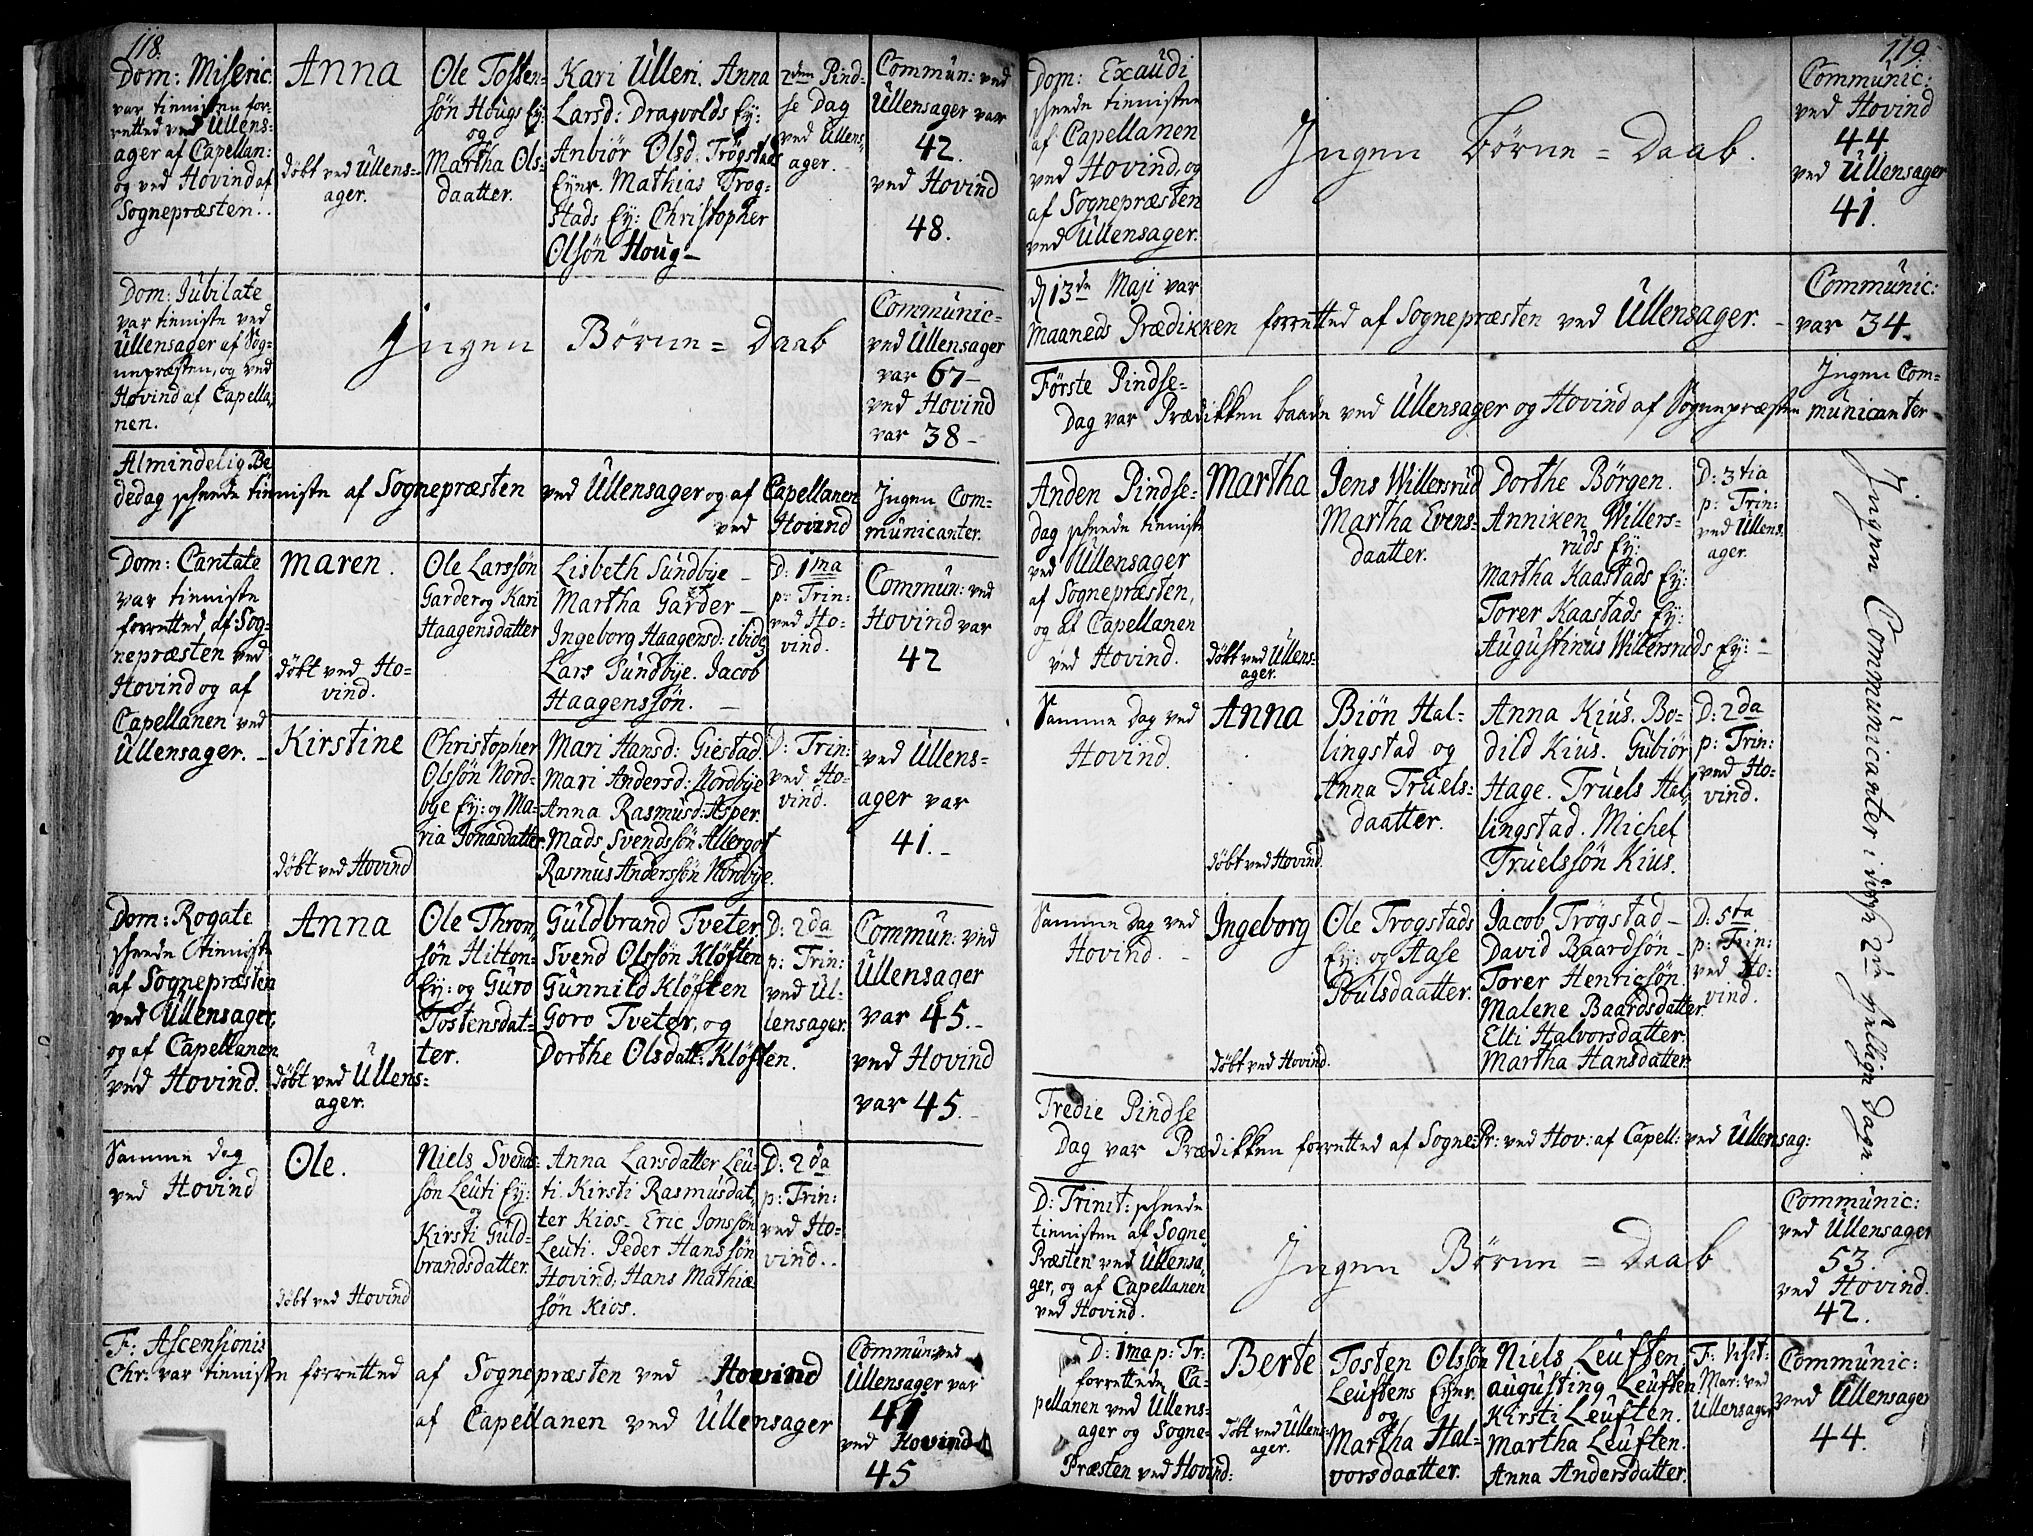 118.
Dom: Miseric:
var tienisten for-
retted ved Ullens-
ager af Capellan:
og ved Hovind af
Sognepræsten.
Anna
döbt ved Ullens-
ager.
Ole Tosten-
sön Hougs Ey:
og
Martha Ols-
daatter.
Kari Ulleri. Anna
Larsd: Dragvolds Ey:
Anbiör Olsd. Trögstads
Eyer. Mathias Trog-
stads Ey: Christopher
Olsön Houg –
2den Pind-
se Dag
ved Ullens-
ager.
Commun: ved
Ullensager var
42.
ved Hovind
48.
Dom: Jubilate
var tieniste ved
Ullensager af Sog-
nepræsten, og ved
Hovind af Capella-
nen.
Ingen Börne = Daab
Communic-
ved Ullensager
var 67 –
ved Hovind
var 38 –
Almindelig Be
dedag skeede tieniste af Sognepræsten ved Ullensager og af Capellanen
ved Hovind
Ingen Com-
municanter.
Dom: Cantate
var tieniste
forretted af Sog-
nepræsten ved
Hovind og af
Capellanen ved
Ullensager. –
Maren.
döbt ved Ho-
vind.
Ole Larssön
Garder og Kari
Haagensdatter
Lisbeth Sundbye –
Martha Garder –
Ingeborg Haagensd: ibid:
Lars Sundbye. Jacob
Haagenssön. –
D: 1ma
p: Trin:
ved Ho-
vind.
Commun: ved
Hovind var
42
Kirstine
döbt ved Hovind
Christopher
Olssön Nord-
bye Ey: og Ma-
ria Jonasdatter
Mari Hansd: Giestad.
Mari Andersd: Nordbye
Anna Rasmusd: Asper.
Mads Svendssön Allergot
Rasmus Anderssön Nordbye.
D: Trin:
ved Ho-
vind.
ved Ullens-
ager var
41. –
Dom: Rogate
skeede tieniste
af Sognepræsten
ved Ullensager,
og af Capellanen
ved Hovind.
Anna
döbt ved Ullens-
ager.
Ole Thron-
sön Hilton-
Ey: og Guro
Tostensdat-
ter.
Guldbrand Tveter
Svend Olssön Klöften
Gunnild Klöften
Goro Tveter, og
Dorthe Olsdatt: Klöften.
D: 2da
p: Trin:
ved Ul-
lensager.
Commun: ved
Ullensager
var 45. –
ved Hovind
var 45.
Samme Dag
ved Hovind
Ole.
döbt ved Hovind
Niels Svend-
sön Leuti Ey:
og
Kirsti Guld-
brandsdatter.
Anna Larsdatter Leu-
ti. Kirsti Rasmusdat-
ter Kios – Eric Jonssön
Leuti. Peder Hanssön
Hovind, Hans Mathiæ
sön Kios.
D: 2da
p: Trin:
ved Ho-
vind.
F: Ascensionis
Chr: var tieniste forretted af Sognepræsten ved Hovind
af Capellanen ved Ullensager
Commun: ved
Ullensager var
41
ved Hovind
45
119.
Dom: Exaudi
skeede tienisten
af Capellanen
ved Hovind, og
af Sognepræsten
ved Ullensager.
Ingen Börne = Daab.
Communic:
ved Hovind
44
ved Ullensager
41.
d 13de Maji var
Maaneds Prædikken forretted af Sognepræsten ved Ullensager. –
Communic:
var 34.
Förste Pindse-
Dag var Prædikken baade ved Ullensager og Hovind af Sognepræsten
Ingen Com-
municanter
Anden Pindse-
Dag skeede tieniste
ved Ullensager
af Sognepræsten,
og af Capellanen
ved Hovind.
Martha
döbt ved Ullens-
ager.
Jens Willersrud
Martha Evens-
daatter.
Dorthe Börgen.
Anniken Willers-
ruds Ey:
Martha Kaastads Ey:
Torer Kaastads Ey:
Augustinus Willersruds Ey: –
D: 3tia
p: Trin:
ved Ullens-
ager.
Ingen Communicanter i disse 2de hellige Dage.
Samme Dag ved
Hovind.
Anna
döbt ved Hovind.
Biön Hal-
lingstad og
Anna Truels-
daatter.
Anna Kius. Bo-
dild Kius. Gubiör
Hage. Truels Hal-
lingstad. Michel
Truelssön Kius.
D: 2da
p: Trin:
ved Ho-
vind.
Samme Dag ved
Hovind. –
Ingeborg
döbt ved Hovind.
Ole Trogstads
Ey: og Aase
Poulsdaatter.
Jacob Trögstad –
David Baardsön –
Torer Henricsön.
Malene Baardsdatter
Elli Halvorsdatter.
Martha Hansdatter.
D: 5ta
p: Trin:
ved Ho-
vind.
Tredie Pindse
Dag var Prædikken forretted af Sogne-Pr: ved Hov: af Capell: ved Ullensag:
D: Trinit: skeede
tienisten af Sogne
Præsten ved Ullensa
ger, og af Capellanen
ved Hovind.
Ingen Börne = Daab
Communic:
ved Ullensager
53.
ved Hovind.
42.
D: 1ma p: Tr:
forrettede Ca-
pellanen ved Ullens-
ager og Sogne-
Præsten ved Hovind:
Berte
döbt ved Ullens-
ager.
Tosten Olssön
Leuftens Eyer.
og
Martha Hal-
vorsdaatter.
Niels Leuften,
augusting Leuften
Kirsti Leuften.
Martha Leuften.
Anna Andersdatter.
F: Visit:
Mar: ved
Ullensager
Communic:
ved Ullensager
44.